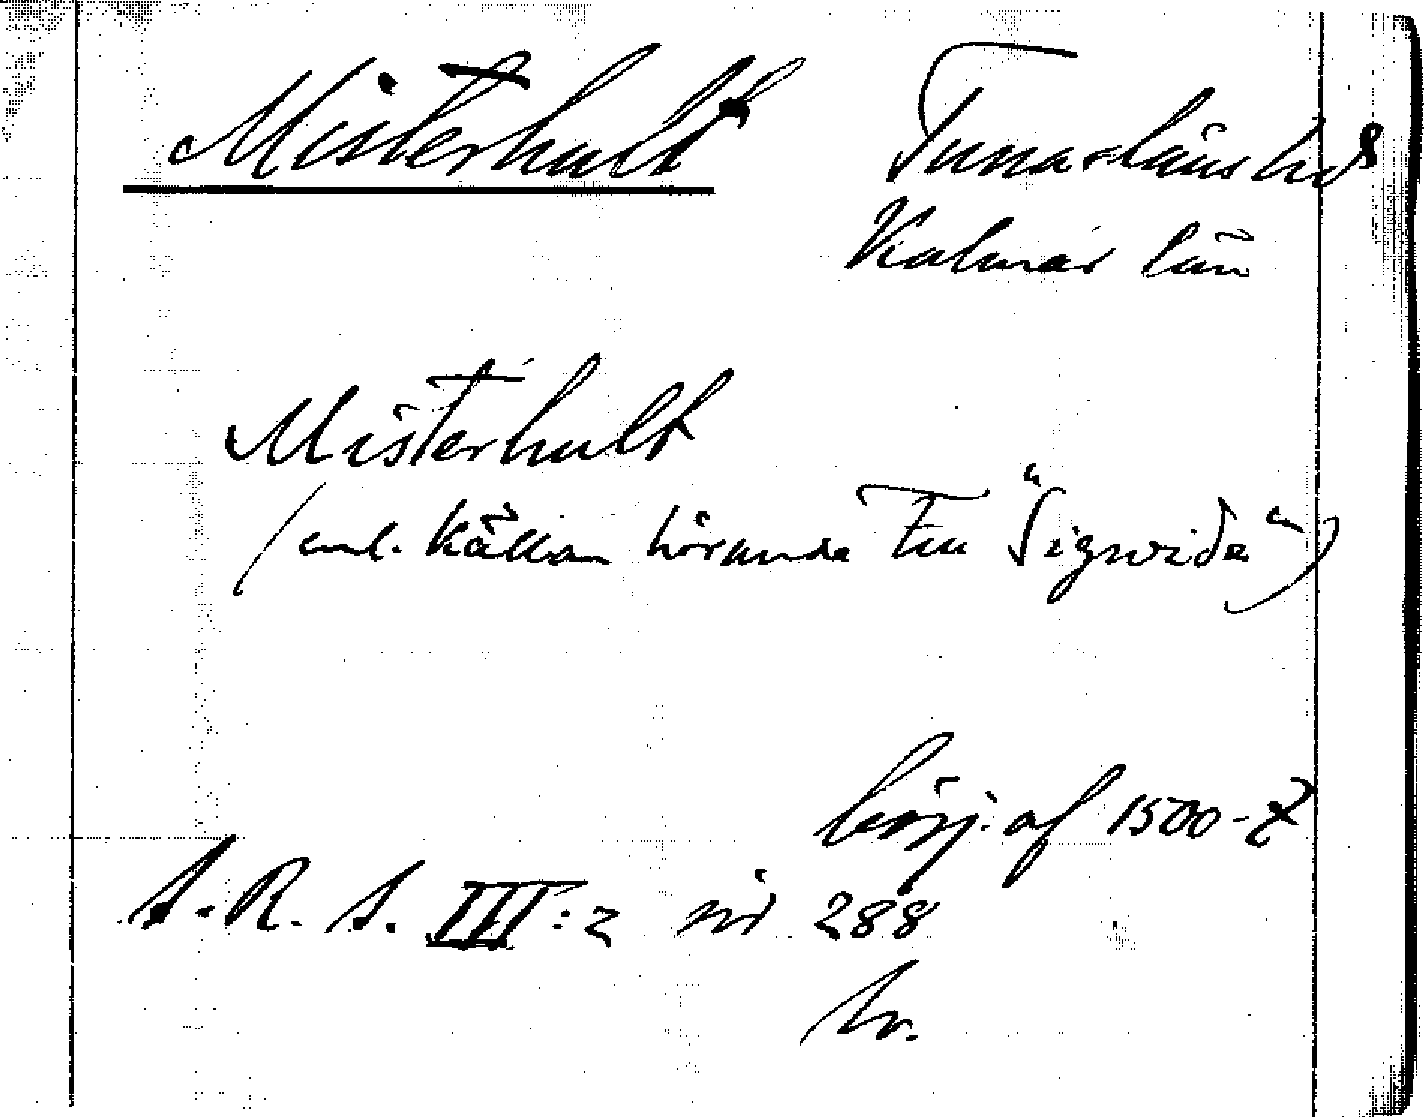 Misterhult Tunaläns hd
Kalmar län
Misterhult
(enl. källan hörande till "Sigwida")
börj. af 1500-t
S. R. S. III:2 sid 288
tr.